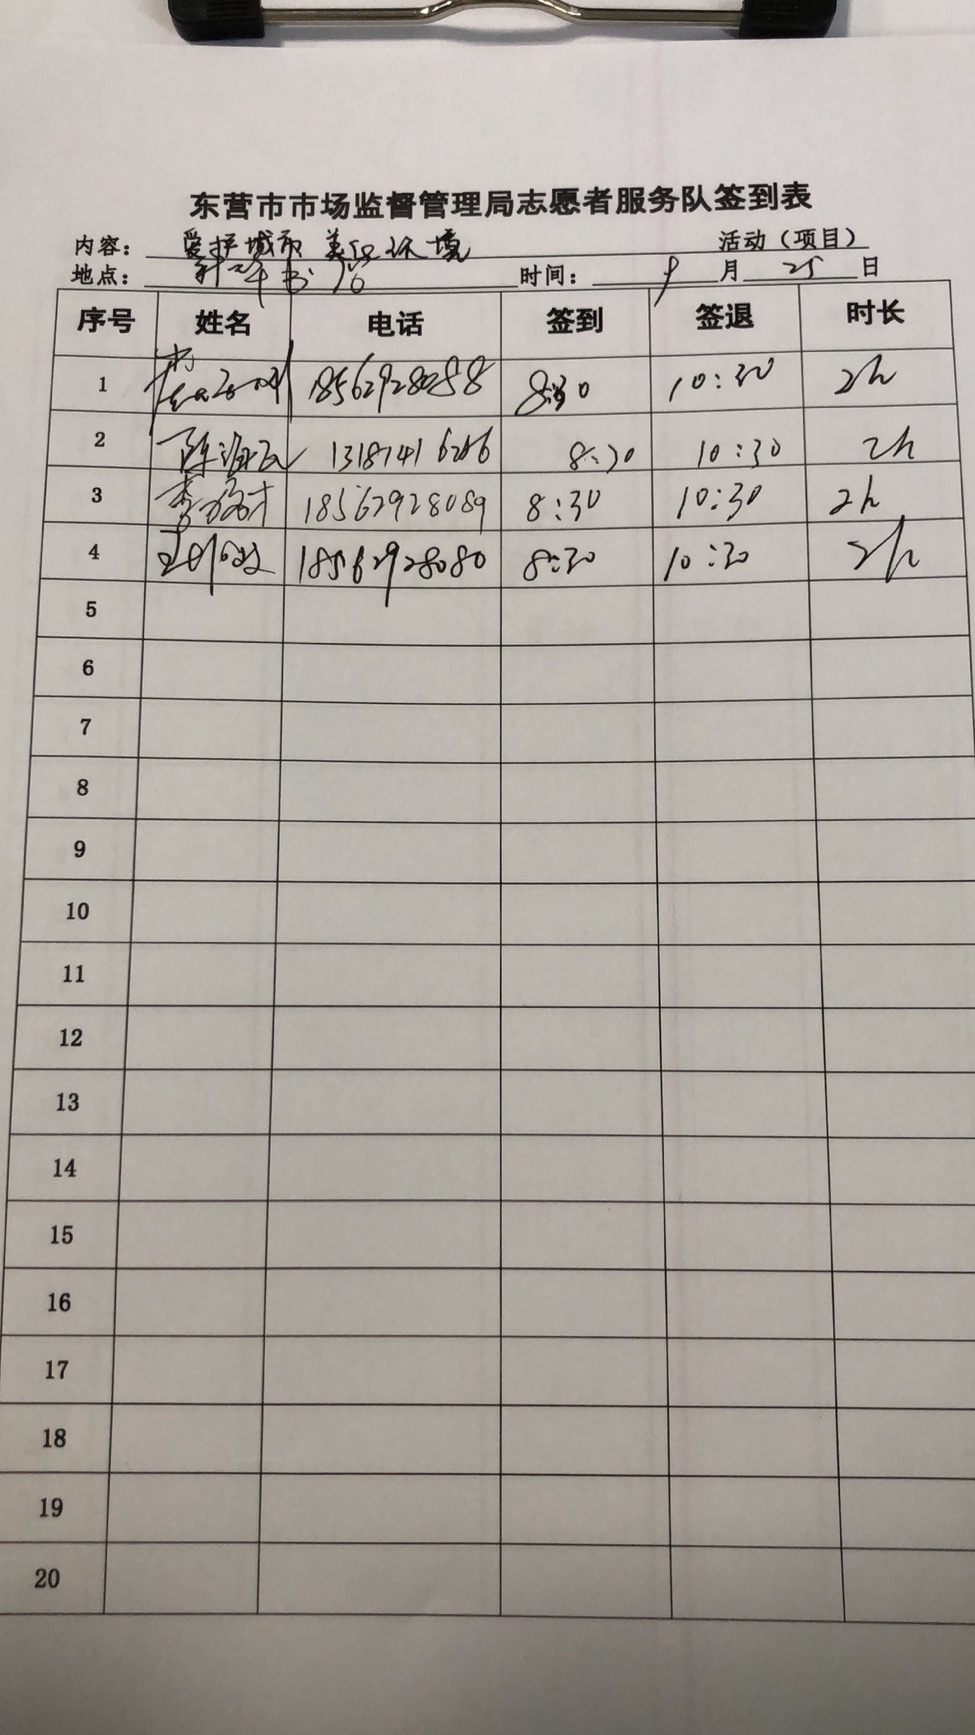 东营市市场监督管理局志愿者服务队签到表
内容：爱护城市 美化环境 活动（项目）
地点：新华书店 时间：9月25日
序号 姓名 电话 签到 签退 时长
1 8:30 10:30 2h
2 陈 8:30 10:30 2h
3 李 18562928089 8:30 10:30 2h
4 王 18562928080 8:30 10:30 2h
5
6
7
8
9
10
11
12
13
14
15
16
17
18
19
20